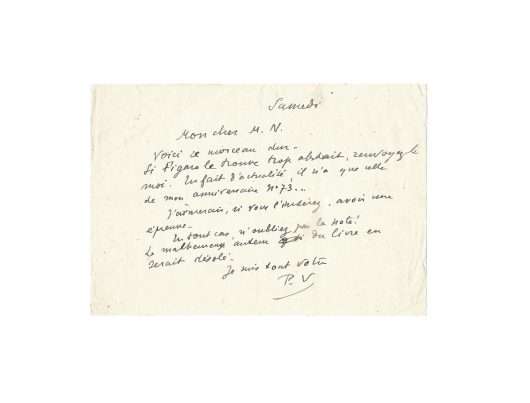 Samedi
Mon cher M. N.
Voici ce morceau dur.
Si Figaro le trouve trop abstrait, renvoyez le
moi. En fait d'actualité, il n'a que celle
de mon anniversaire N° 73...
J'aimerais, si vous l'insérez, avoir une
épreuve.
En tout cas, n'oubliez pas la note!
Le malheureux auteur du livre en
serait désolé.
Je suis tout votre
P. V